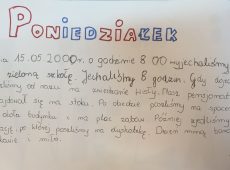 PONIEDZIAŁEK
a 15.05.2000r. o godzinie 8.00 wyjechaliśmy
zieloną szkołę. Jechaliśmy 8 godzin. Gdy
od razu na zwiedzanie Wisły. Nasz pensjonat
się na stoku. Po obiedzie poszliśmy na spacer
budynku i na plac zabaw. Później
po której poszliśmy na dyskotekę. Dzień minął
i miło.